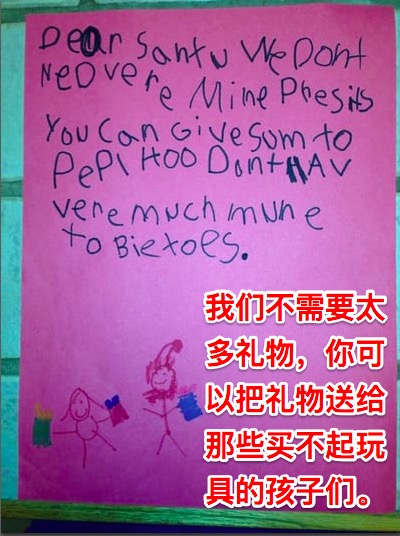 Dear Santu We Dont
NeD vere Mine Presits
You Can Give Sum to
PePl Hoo Dont HAV
vere much mune
to Bietoes.
我们不需要太
多礼物，你可
以把礼物送给
那些买不起玩
具的孩子们。